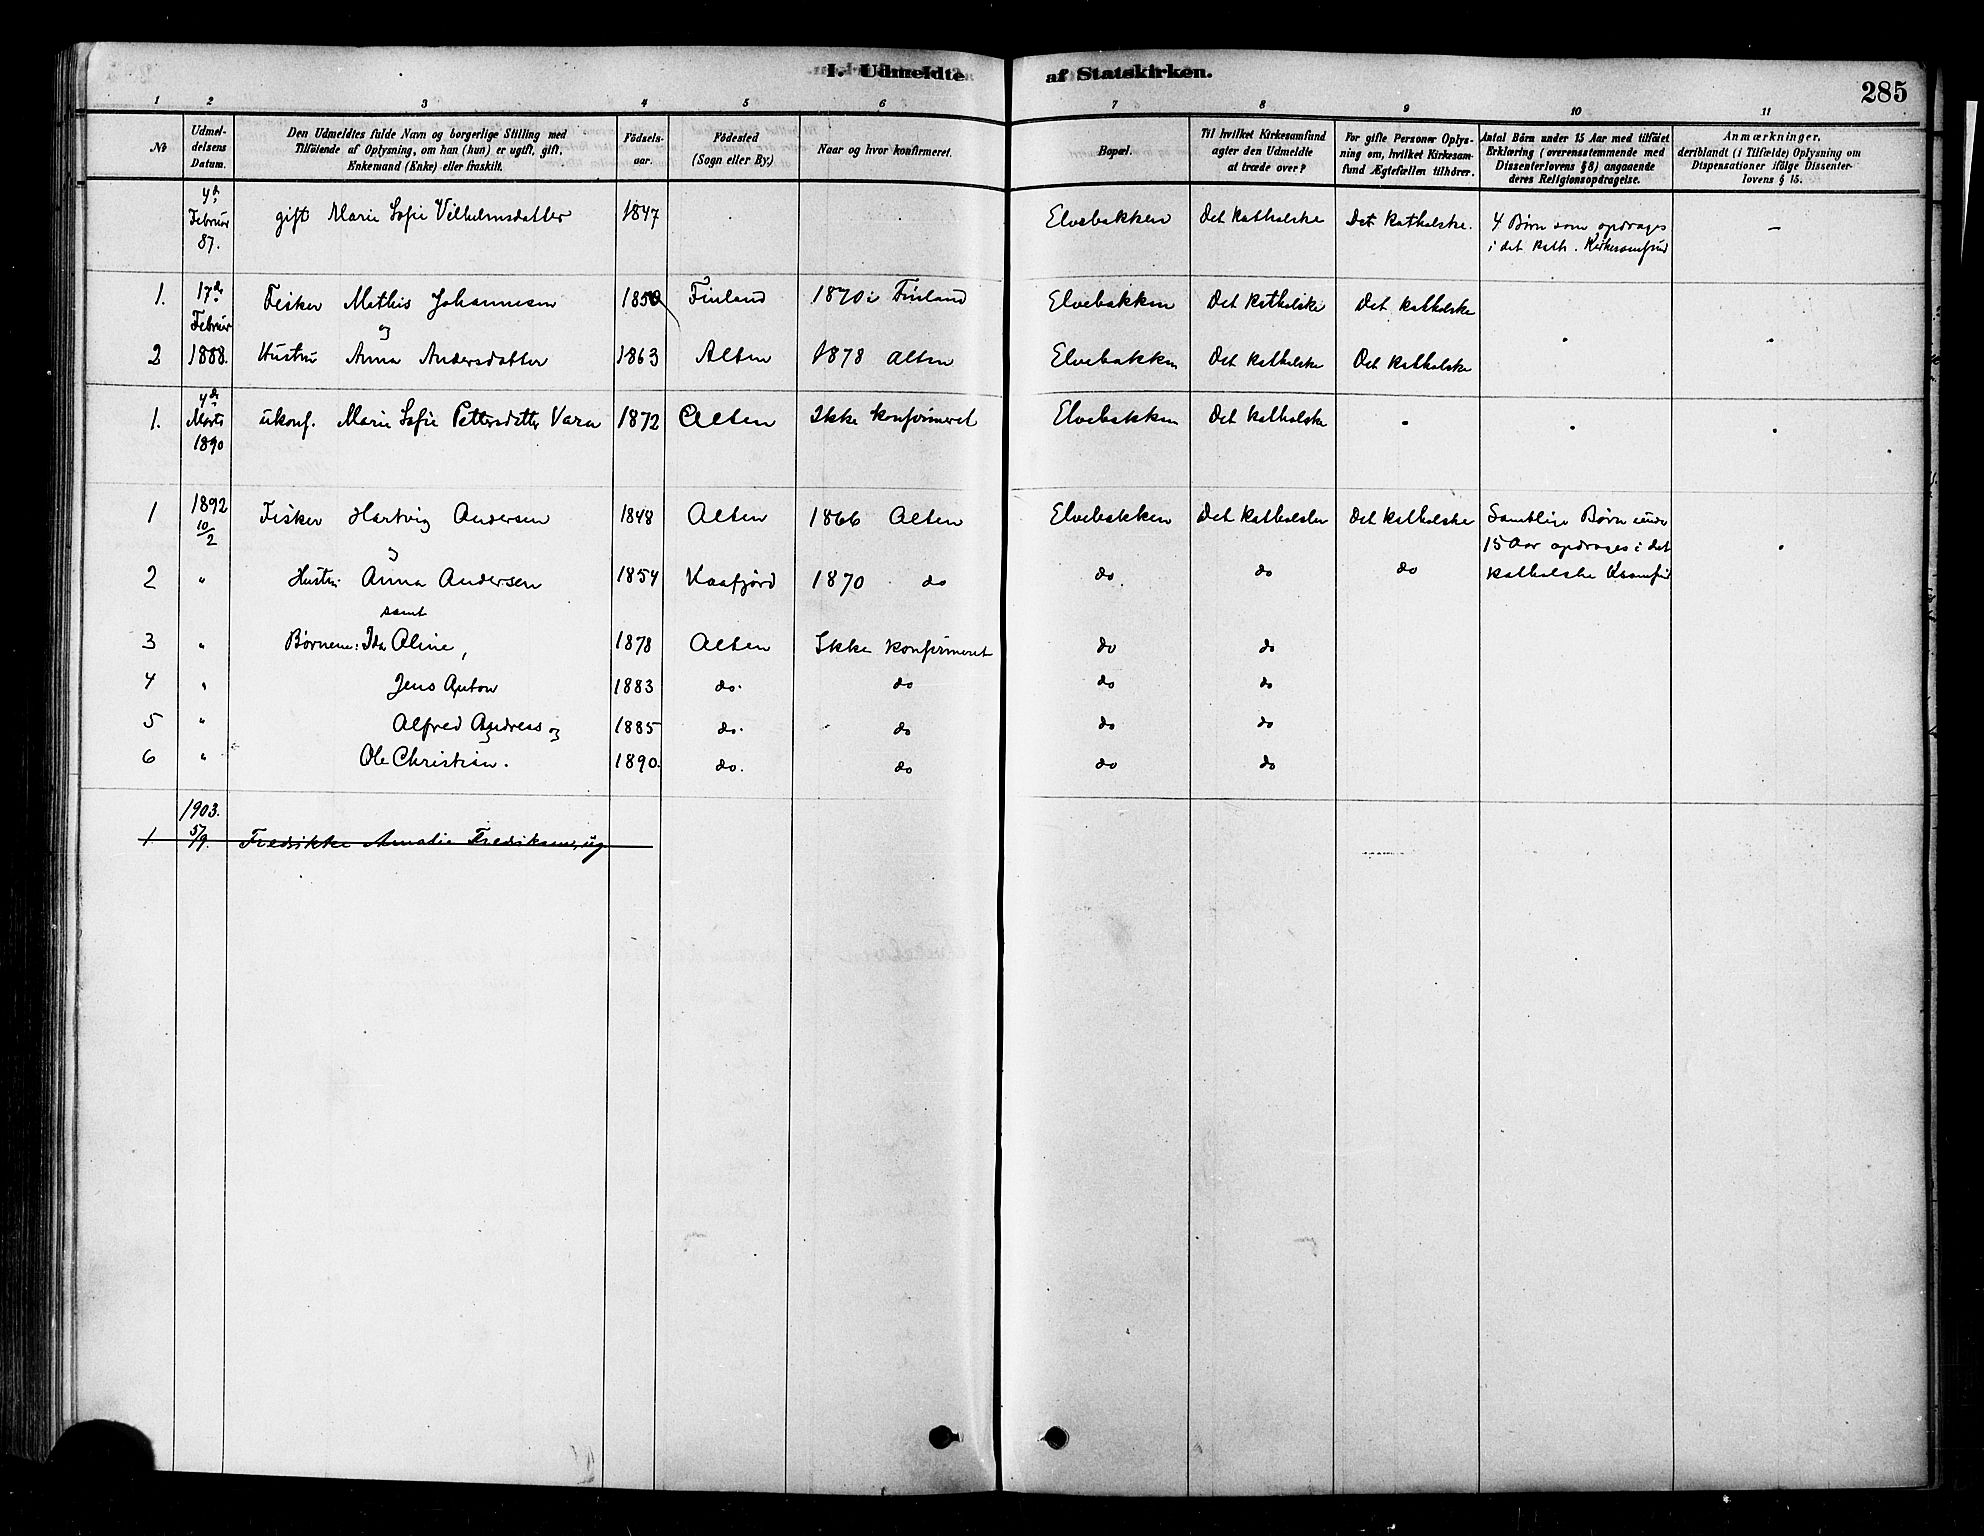 I. Udmeldte af Statskirken.
285
1 2 3 4 5 6 7 8 9 10 11
No
Udmel-
delsens
Datum.
Den Udmeldtes fulde Navn og borgerlige Stilling med
Tilføiende af Oplysning, om han (hun) er ugift, gift,
Enkemand (Enke) eller fraskilt.
Fødsels-
aar.
Fødested
(Sogn eller By.)
Naar og hvor konfirmeret.
Bopæl.
Til hvilket Kirkesamfund
agter den Udmeldte
at træde over?
For gifte Personer Oplys-
ning om, hvilket Kirkesam-
fund Ægtefællen tilhører.
Antal Børn under 15 Aar med tilføiet
Erklæring (overensstemmende med
Dissenterlovens § 8) angaaende
deres Religionsopdragelse.
Anmærkninger,
deriblandt (i Tilfælde) Oplysning om
Dispensationer ifølge Dissenter-
lovens § 15.
4de
Februar
87.
gift Marie Sofie Vilhelmsdatter 1847 Elvebakken Det katholske Det katholske. 4 Børn som opdrages
i det kath. Kirkesamfund
1. 17de Fisker Mathis Johannesen 1850 Finland 1870 i Finland Elvebakken Det katholske Det katholske
Februar og
2 1888. Hustru Anna Andersdatter 1863 Alten 1878 Alten Elvebakken Det katholske Det katholske
4de
1. Marts ukonf. Marie Sofie Pettersdatter Vara 1872 Alten Ikke konfirmeret Elvebakken Det katholske
1890
1 1892 Fisker Hartvig Andersen 1848 Alten 1866 Alten Elvebakken Det katholske Det katholske Samtlige Børn under
10/2 og 15 Aar opdrages i det
2 " Hustru Anna Andersen 1854 Kaafjord 1870 do do. do do katholske Ksamfund
samt
3 " Børnene: Ida Aline, 1878 Alten Ikke konfirmeret do do
4 " Jens Anton 1883 do. do do do
5 " Alfred Andreas og 1885 do. do do do
6 " Ole Christian. 1890. do. do do do
1903.
1 5/9. Fredrikke Amalie Fredriksen, ug